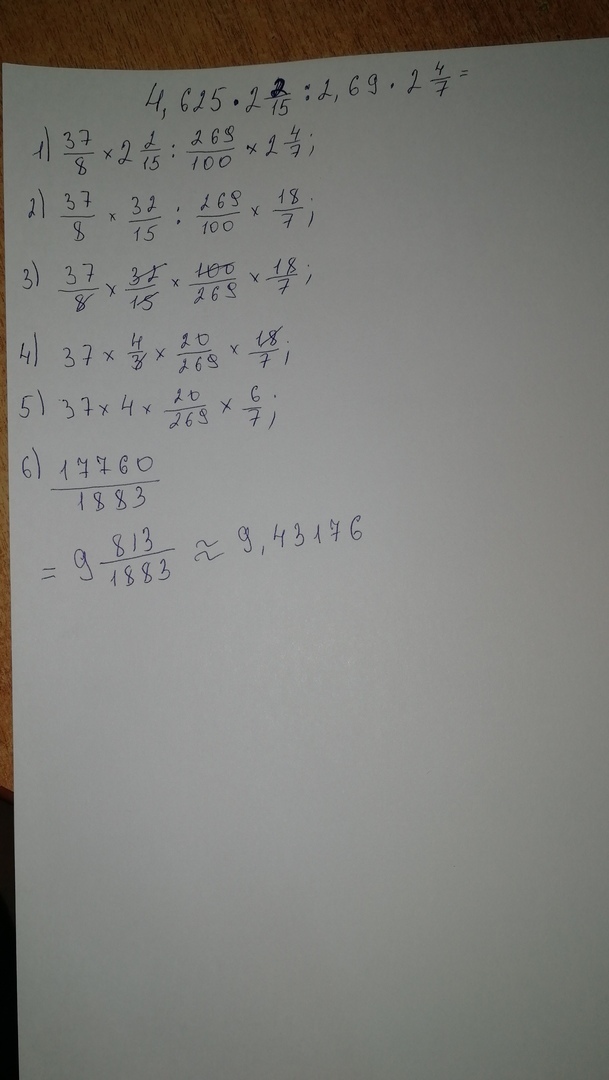 4,625 · 2 2/15 : 2,69 · 2 4/7 =
1) 37/8 × 2 2/15 : 269/100 × 2 4/7;
2) 37/8 × 32/15 : 269/100 × 18/7;
3) 37/8 × 32/15 × 100/269 × 18/7;
4) 37 × 4/3 × 20/269 × 18/7;
5) 37 × 4 × 20/269 × 6/7;
6) 17760/1883
= 9 813/1883 ≈ 9,43176